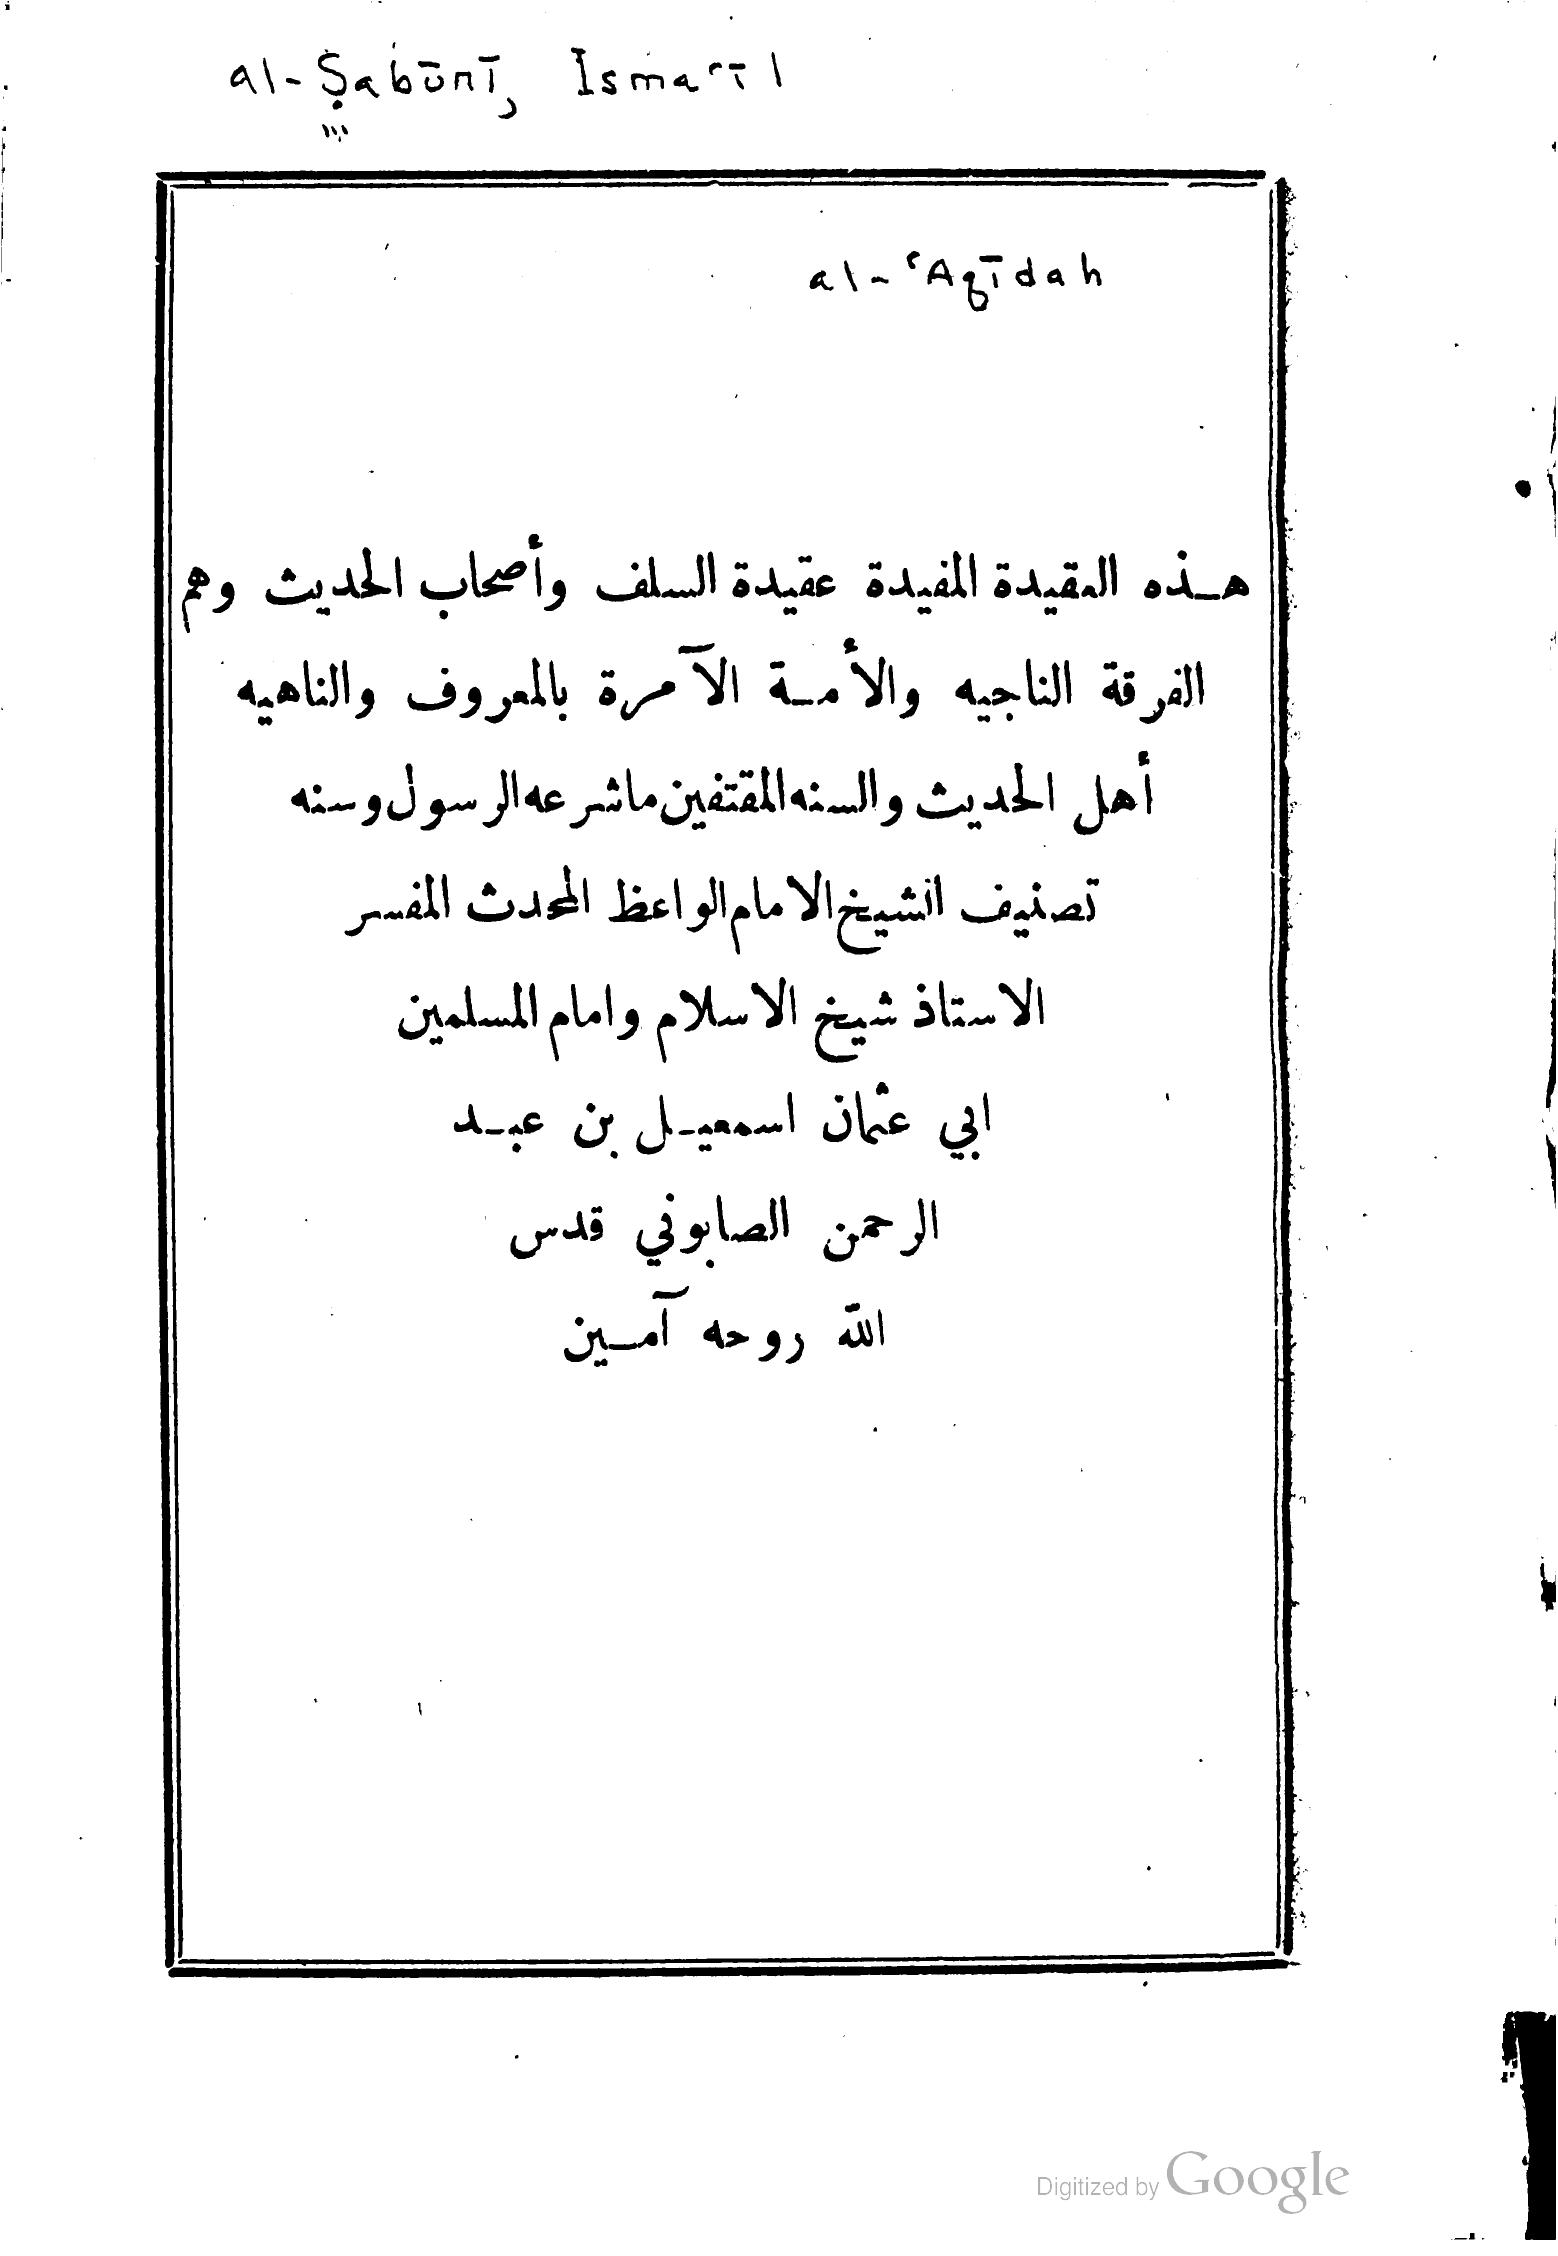 al-Ṣabūnī, Isma‘īl
al-‘Aqīdah
هذه العقيدة المفيدة عقيدة السلف وأصحاب الحديث وهم
الفرقة الناجيه والأمة الآمرة بالمعروف والناهيه
أهل الحديث والسنه المقتفين ماشرعه الرسول وسنه
تصنيف الشيخ الامام الواعظ المحدث المفسر
الاستاذ شيخ الاسلام وامام المسلمين
ابي عثمان اسمعيل بن عبد
الرحمن الصابوني قدس
الله روحه آمين
Digitized by Google